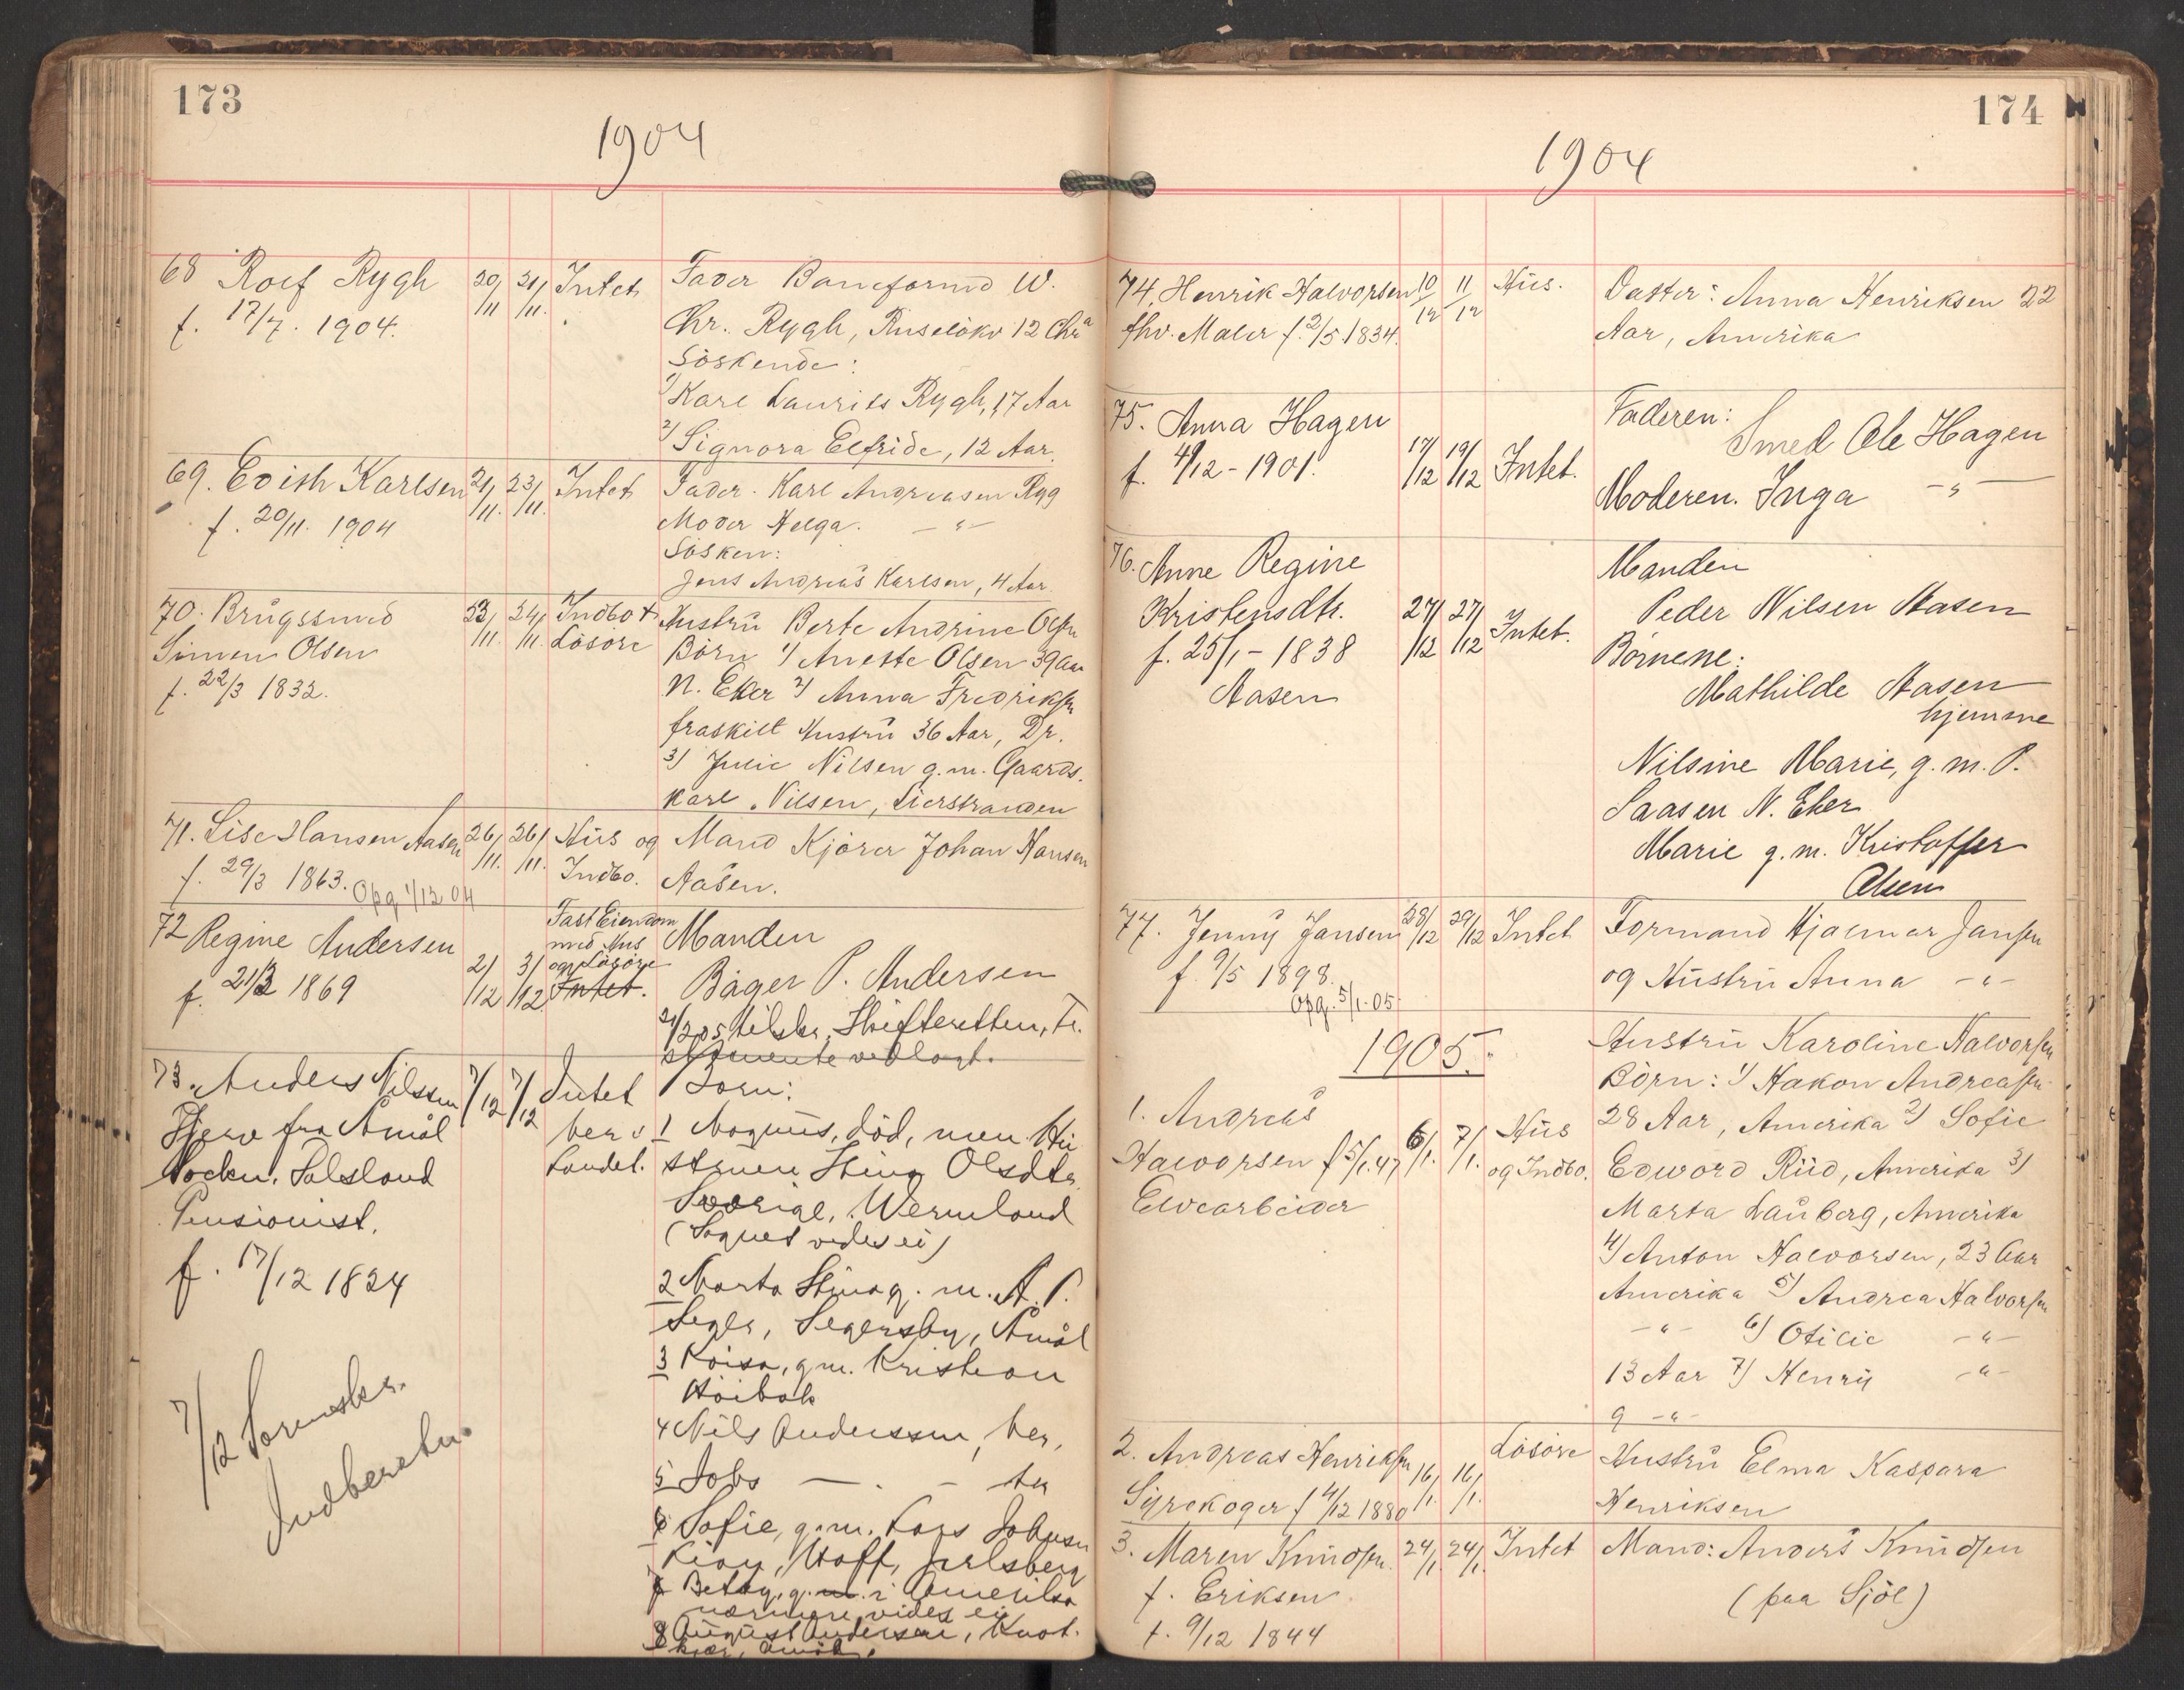 173
1904
68 Rolf Rygh 20/11 21/11 Intet Fader Baneformd W.
f. 17/7. 1904. Chr. Rygh, Ruseløkv 12 Chra
Søskende:
1) Karl Laurits Rygh, 17 Aar
2) Signora Elfride, 12 Aar.
69. Edith Karlsen 21/11. 23/11. Intet Fader. Karl Andreasen Rygg
f. 20/11. 1904 Moder Helga. -"-
Søsken:
Jens Andreas Karlsen, 4 Aar.
70. Brugssmed 23/11. 24/11. Indbo + Hustru Berte Andrine Olsen
Simen Olsen Løsøre Børn 1) Anette Olsen 39 Aar
f. 22/3 1832. N. Eker 2) Anna Fredriksen
fraskilt Hustru 36 Aar, Dr.
3) Julie Nilsen g.m. Gaards.
Karl Nilsen, Lierstranden
71. Lise Hansen Aasen 26/11. 26/11. Hus og Mand Kjører Johan Hansen
f. 29/3 1863. Opg 1/12 04 Indbo. Aasen.
72 Regine Andersen 2/12 3/12 Fast Eiendom med Hus og Løsøre Intet. Manden
f. 21/3 1869 Bager P. Andersen
21/2 05 tilskr. Skifteretten, Te-
stamente vedlagt.
73. Anders Nilssen 7/12 7/12 Intet Born:
Hjerv fra Åmål her i 1 Magnus, død, men Hu-
Socken, Dalsland Landet. struen Stina Olsdtr
Pensionist. Sverige, Wermland
f. 17/12 1824 (Sognet vides ei)
2 Marta Stina g. m. A. P.
Seger, Segersby, Åmål
3 Kaisa, g m. Kristian
Høibak
4 Nils Anderssen, her,
5 Johs — . - her
6 Sofie, g. m. Lars Johnsen
, Hoff, Jarlsberg
7 Betsy, g. m. i Amerika
nærmere vides ei
8 August Andersen,
, Åmål.
7/12 Lensm.
Indberetn.
174
1904
74. Henrik Halvorsen 10/12 11/12 Hus. Datter: Anna Henriksen 22
fhv. Maler f. 2/5 1834. Aar, Amerika
75. Anna Hagen 17/12 19/12 Intet. Faderen:
f. 4/12 - 1901. Smed Ole Hagen
Moderen. Inga -"-
76. Anne Regine Manden
Kristensdtr. 27/12 27/12 Intet. Peder Nilsen Aasen
f. 25/1 - 1838 Børnene:
Aasen Mathilde Aasen
hjemme
Nilsine Marie, g. m. P.
Saasen N. Eker
Marie g. m. Kristoffer
Olsen
77. Jenny Jansen 28/12 29/12 Intet Formand Hjalmar Jansen
f. 9/5 1898. og Hustru Anna -"-
Opg. 5/1-05.
1905. Hustru Karoline Halvorsen
Børn: 1) Hakon Andreassen
1. Andreas 28 Aar, Amerika 2) Sofie
Halvorsen f 5/1.47 6/1. 7/1. Hus og Indbo. Edward Riid, Amerika 3)
Elvearbeider Marta Lauberg, Amerika
4) Anton Halvorsen, 23 Aar
Amerika 5) Andrea Halvorsen
-"- 6) Otilie -"-
13 Aar 7) Henry -"-
9 -"-
2. Andreas Henriksen 16/1. 16/1. Løsøre Hustru Elma Kaspara
Syrekoger f 4/12 1880 Henriksen
3. Maren Knudsen 24/1. 24/1. Intet Mand: Anders Knudsen
f. Eriksen (paa Sjøl)
f. 9/12 1844